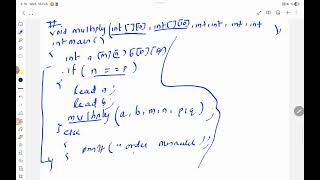 #
void multiply (int[][10], int[][10], int, int, int, int);
int main()
{ int a[10][10] b[10][10]
if (n == p)
{
Read a;
Read b;
multiply (a, b, m, n, p, q);
}
else
{
printf("order mismatch");
}